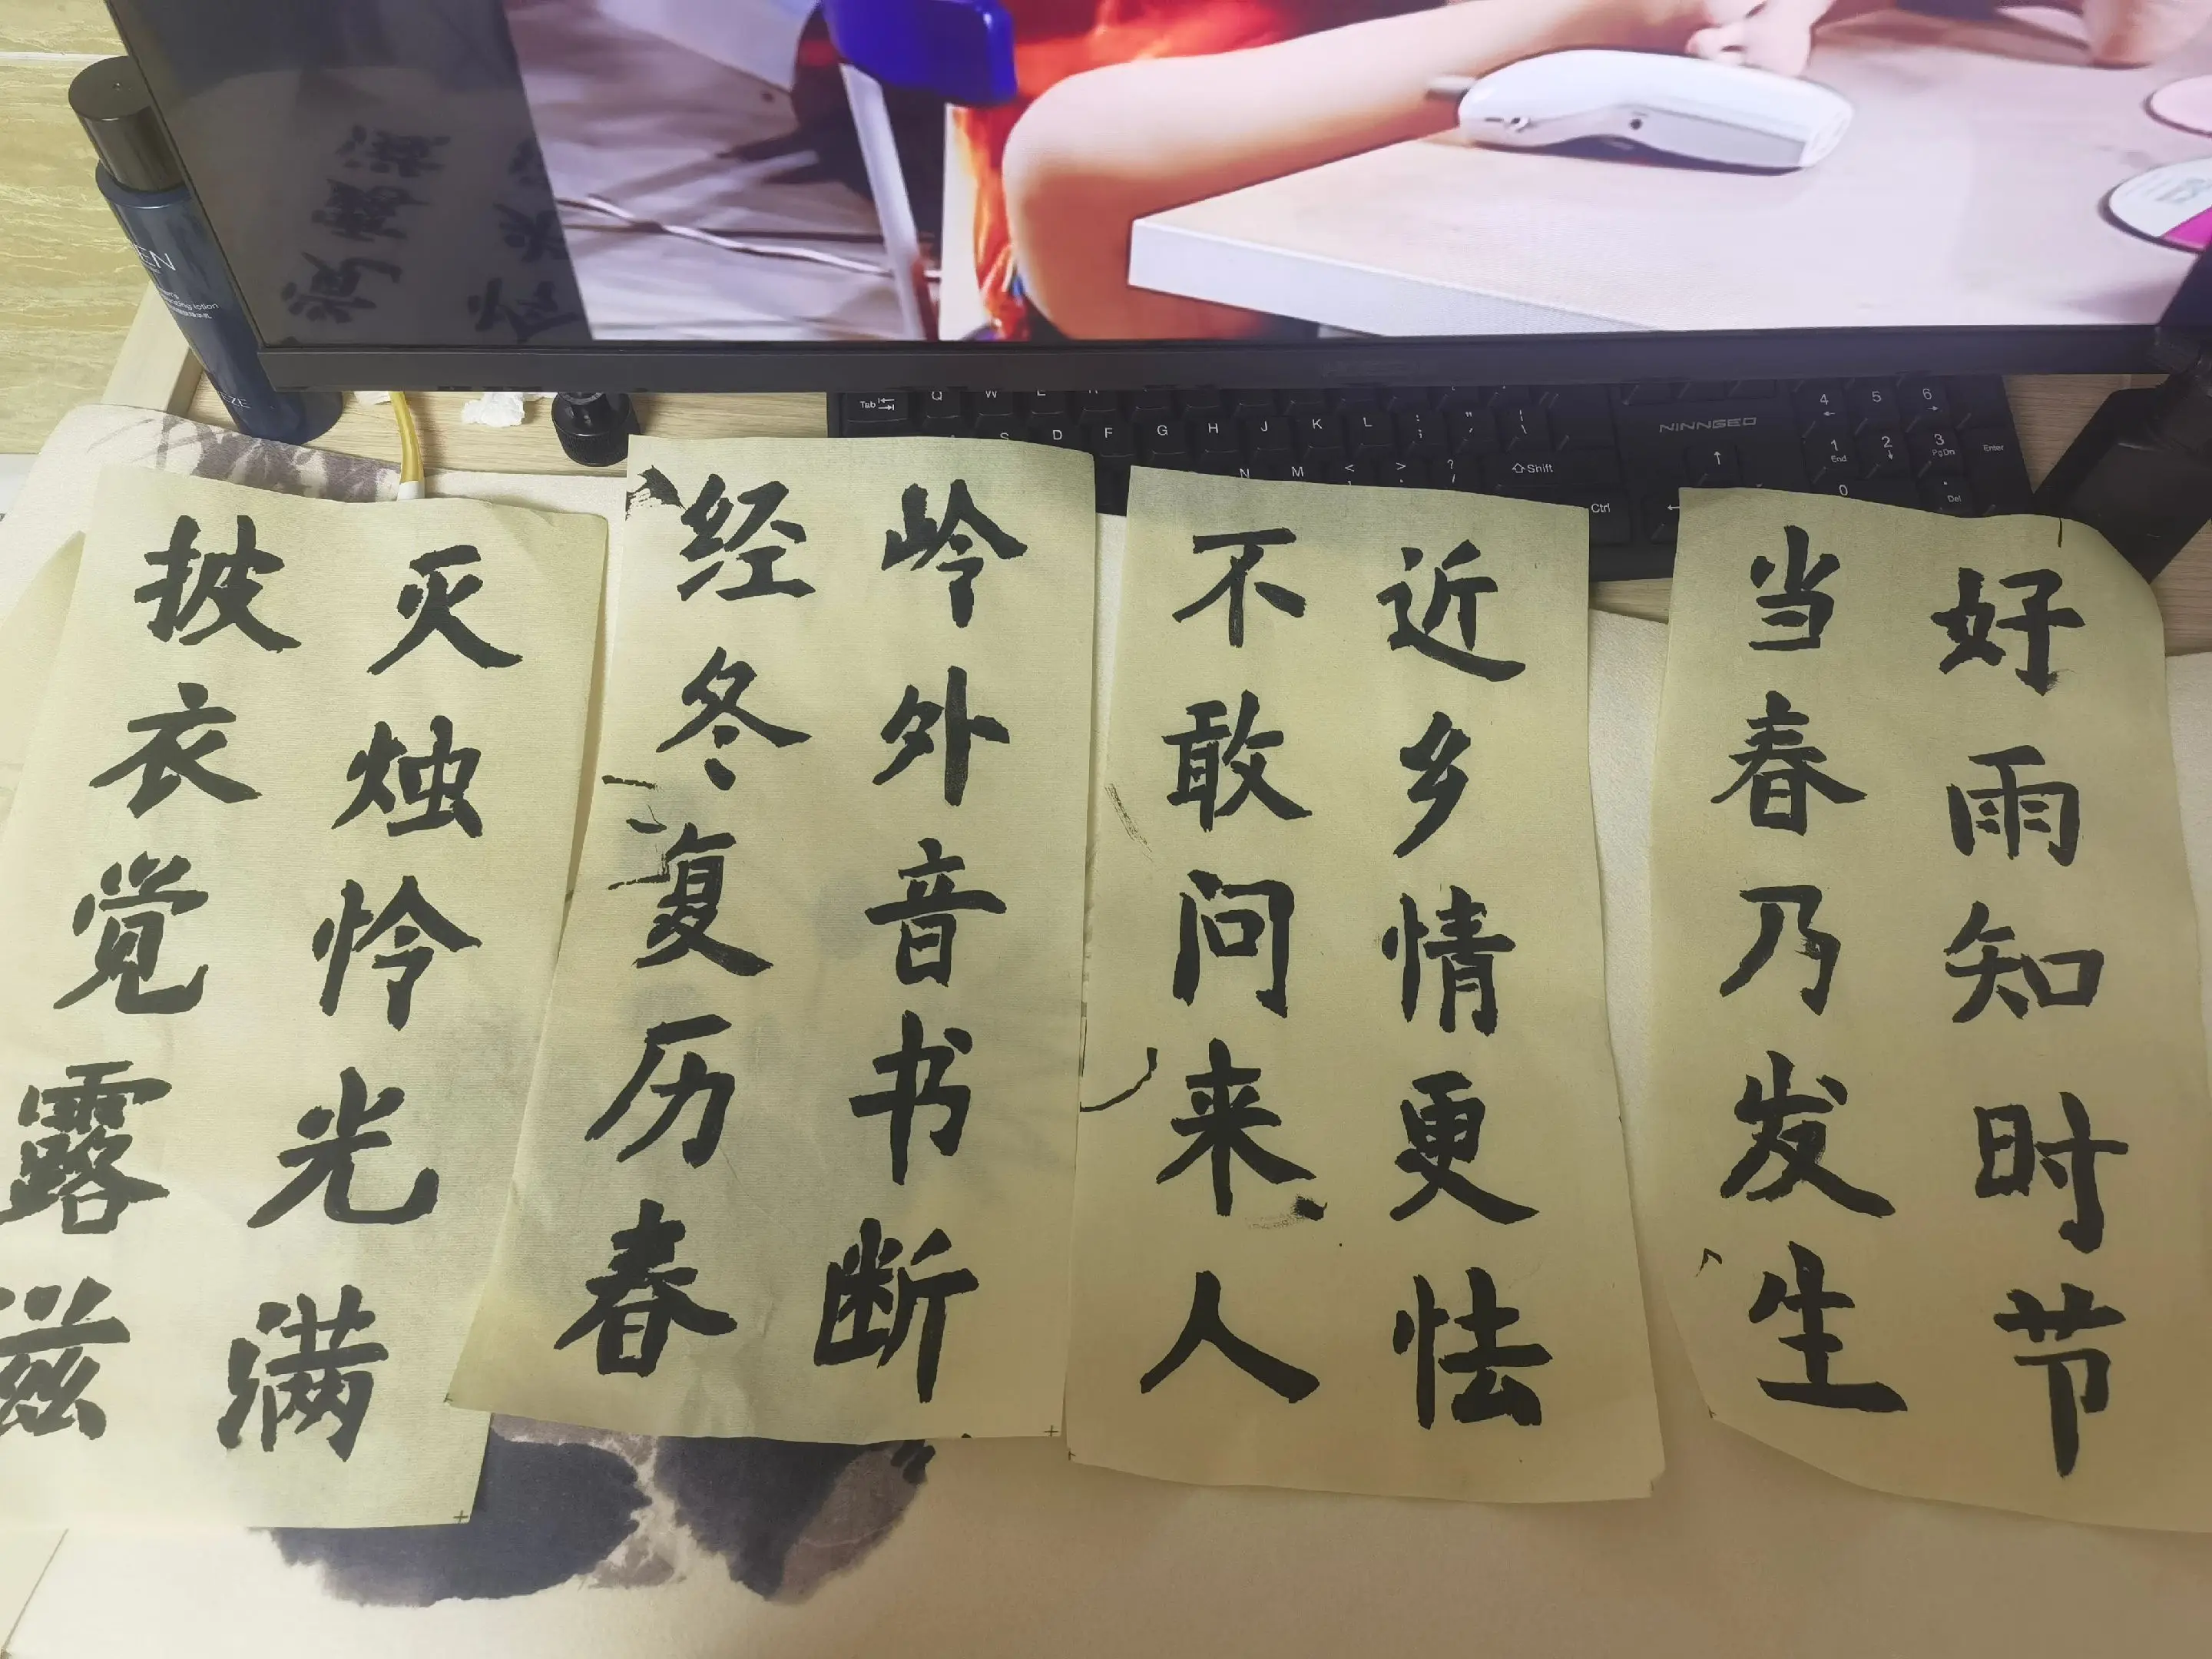 好雨知时节
当春乃发生
近乡情更怯
不敢问来人
岭外音书断
经冬复历春
灭烛怜光满
披衣觉露滋
NINNGEO
Tab
Q W E
S D F G H J K L
N M < > ?
Shift
Ctrl
4 5 6
1 2 3
End PgDn
Enter
0
Del
lotion